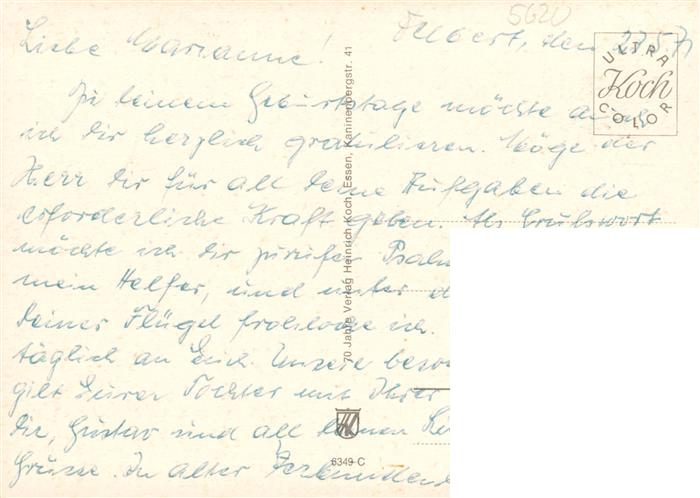 5620
Velbert, den 23.5.71
Liebe Marianne!
ULTRA
Koch
COLOR
Zu deinem Geburtstage möchte auch
ich dir herzlich gratulieren. Möge der
Herr dir für all deine Aufgaben die
erforderliche Kraft geben. Als Grußwort
möchte ich dir zurufen
mein Helfer, und unter d
deiner Flügel frohlocke ich.
täglich an Euch. Unsere beso
gilt Eurer Tochter mit Ihrer
dir, Gustav und all
Grüsse. In alter
70 Jahre Verlag Heinrich Koch, Essen, Kaninenbergstr. 41
6349 C